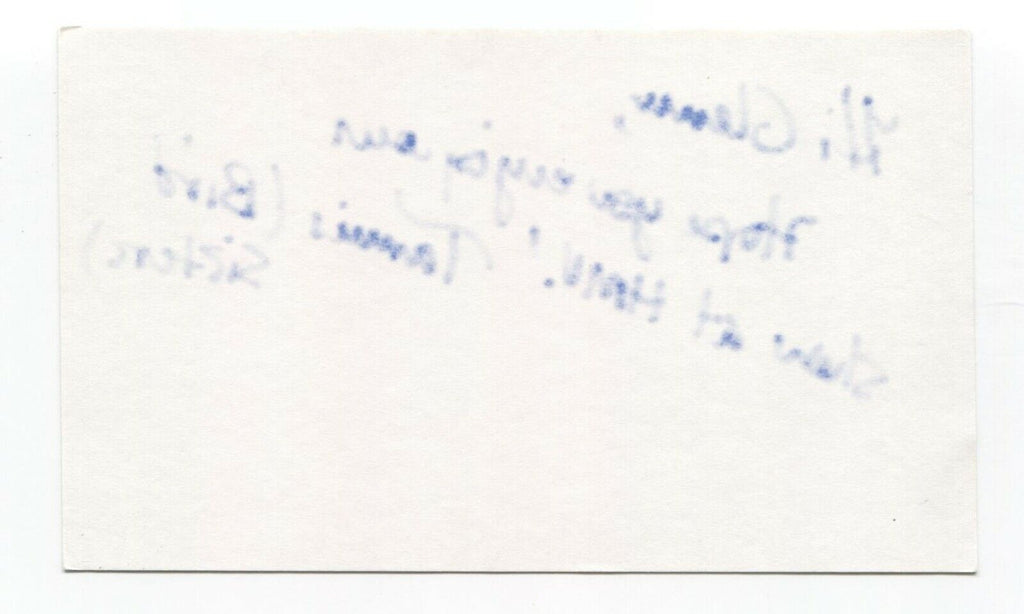 Hi Glenn,
Hope you enjoy our
show at
! Tannis (Bird
Sisters)